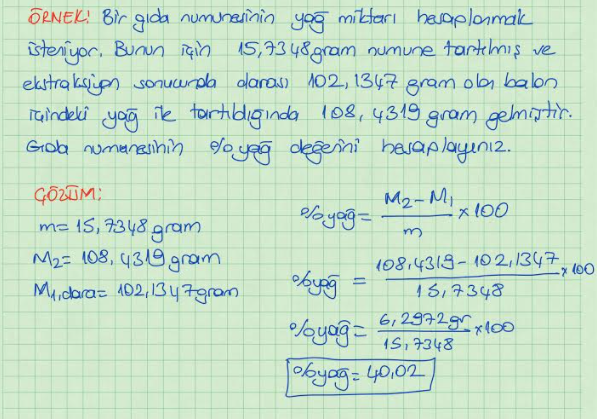 ÖRNEK: Bir gıda numunesinin yağ miktarı hesaplanmak
isteniyor. Bunun için 15,7348 gram numune tartılmış ve
ekstraksiyon sonucunda darası 102,1347 gram olan balon
içindeki yağ ile tartıldığında 108,4319 gram gelmiştir.
Gıda numunesinin %yağ değerini hesaplayınız.
ÇÖZÜM:
m= 15,7348 gram
M2= 108,4319 gram
M1,dara= 102,1347 gram
%yağ= M2-M1 / m ×100
%yağ = 108,4319-102,1347 / 15,7348 ×100
%yağ= 6,2972gr / 15,7348 ×100
%yağ= 40,02